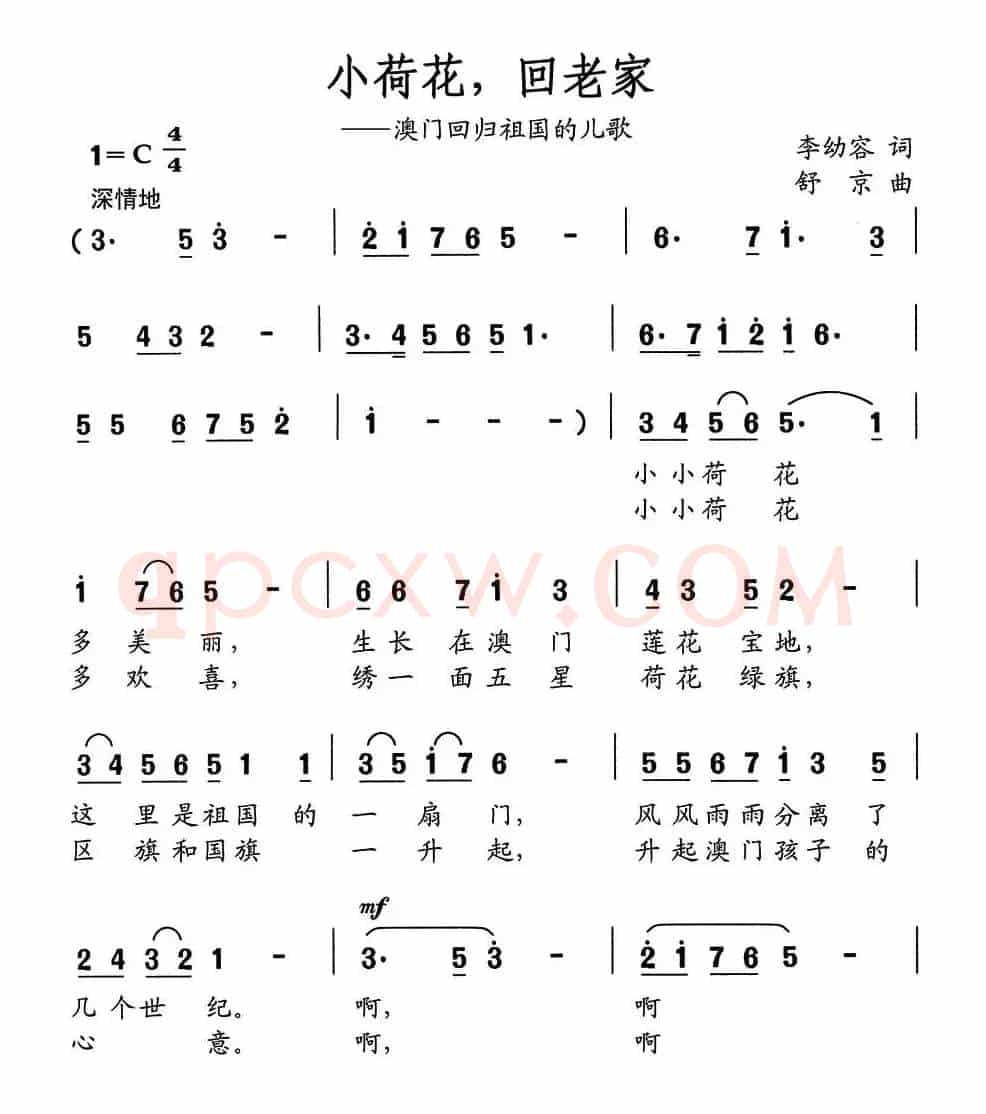 小荷花，回老家
——澳门回归祖国的儿歌
1=C 4/4
李幼容 词
深情地
舒 京 曲
(3· 5 3̇ - | 2̇ 1̇ 7 6 5 - | 6· 7 1̇· 3 |
5 4 3 2 - | 3· 4 5 6 5 1· | 6· 7 1̇ 2̇ 1̇ 6· |
5 5 6 7 5 2̇ | 1̇ - - - ) | 3 4 5 6 5· 1 |
小小荷 花
小小荷 花
1̇ 7 6 5 - | 6 6 7 1̇ 3 | 4 3 5 2 - |
多 美 丽， 生长 在澳 门 莲花 宝地，
多 欢 喜， 绣一 面五 星 荷花 绿旗，
qpcxw.COM
3 4 5 6 5 1 1 | 3 5 1̇ 7 6 - | 5 5 6 7 1̇ 3 5 |
这 里是祖国 的 一 扇 门， 风风雨雨分离了
区 旗和国旗 一 升 起， 升起澳门孩子的
mf
2 4 3 2 1 - | 3· 5 3̇ - | 2̇ 1̇ 7 6 5 - |
几个世 纪。 啊， 啊
心 意。 啊， 啊